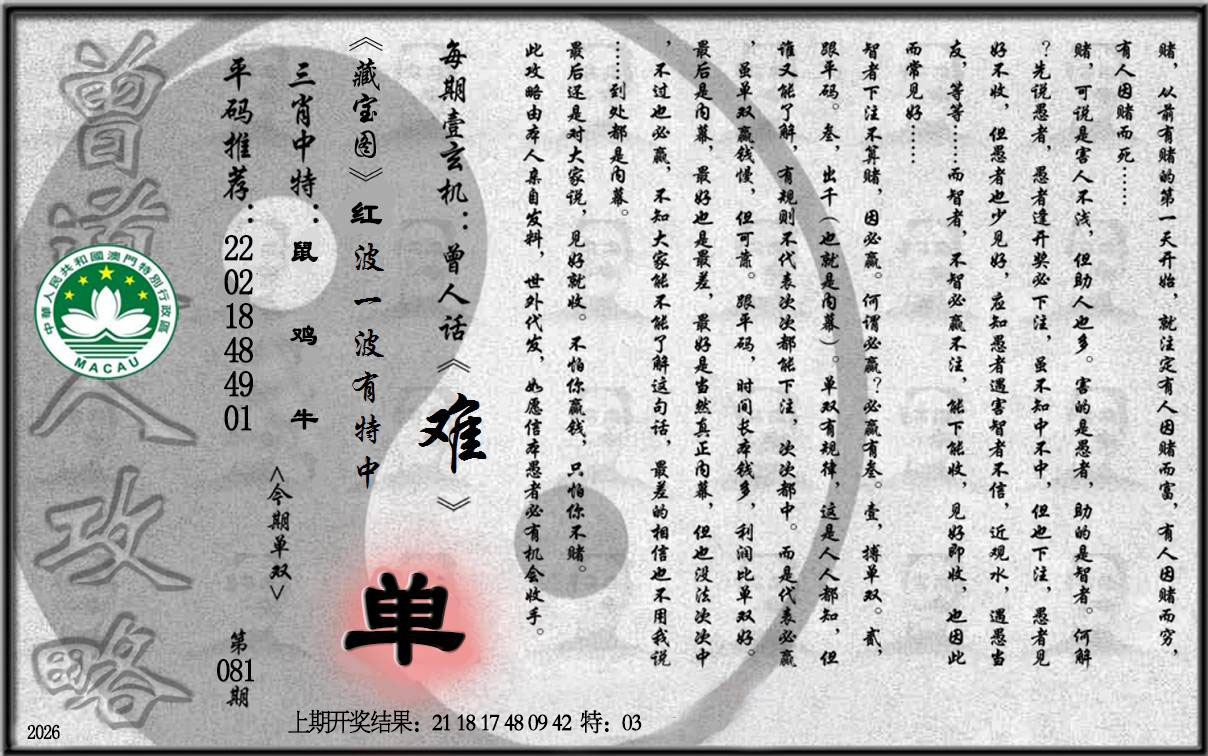 赌，从前有赌的第一天开始，就注定有人因赌而富，有人因赌而穷，
有人因赌而死……
赌，可说是害人不浅，但助人也多。害的是愚者，助的是智者。何解
？先说愚者，愚者逢开奖必下注，虽不知中不中，但也下注，愚者见
好不收，但愚者也少见好，应知愚者遇害智者不信，近观水，遇愚当
友，等等……而智者，不智必赢不注，能下能收，见好即收，也因此
而常见好……
智者下注不算赌，因必赢。何谓必赢？必赢有叁。壹，搏单双。贰，
跟平码。叁，出千（也就是内幕）。单双有规律，这是人人都知，但
谁又能了解，有规则不代表次次都能下注，次次都中。而是代表必赢
，虽单双赢钱慢，但可靠。跟平码，时间长本钱多，利润比单双好。
最后是内幕，最好也是最差，最好是当然真正内幕，但也没法次次中
，不过也必赢，不知大家能不能了解这句话，最差的相信也不用我说
……到处都是内幕。
最后还是对大家说，见好就收。不怕你赢钱，只怕你不赌。
此攻略由本人亲自发料，世外代发，如愿信本愚者必有机会收手。
每期壹玄机：曾人话《难》
《藏宝图》红波一波有特中
单
三肖中特：鼠 鸡 牛
<今期单双>
平码推荐：22 02 18 48 49 01
第081期
曾道人攻略
中華人民共和國澳門特別行政區
MACAU
上期开奖结果：21 18 17 48 09 42 特：03
2026